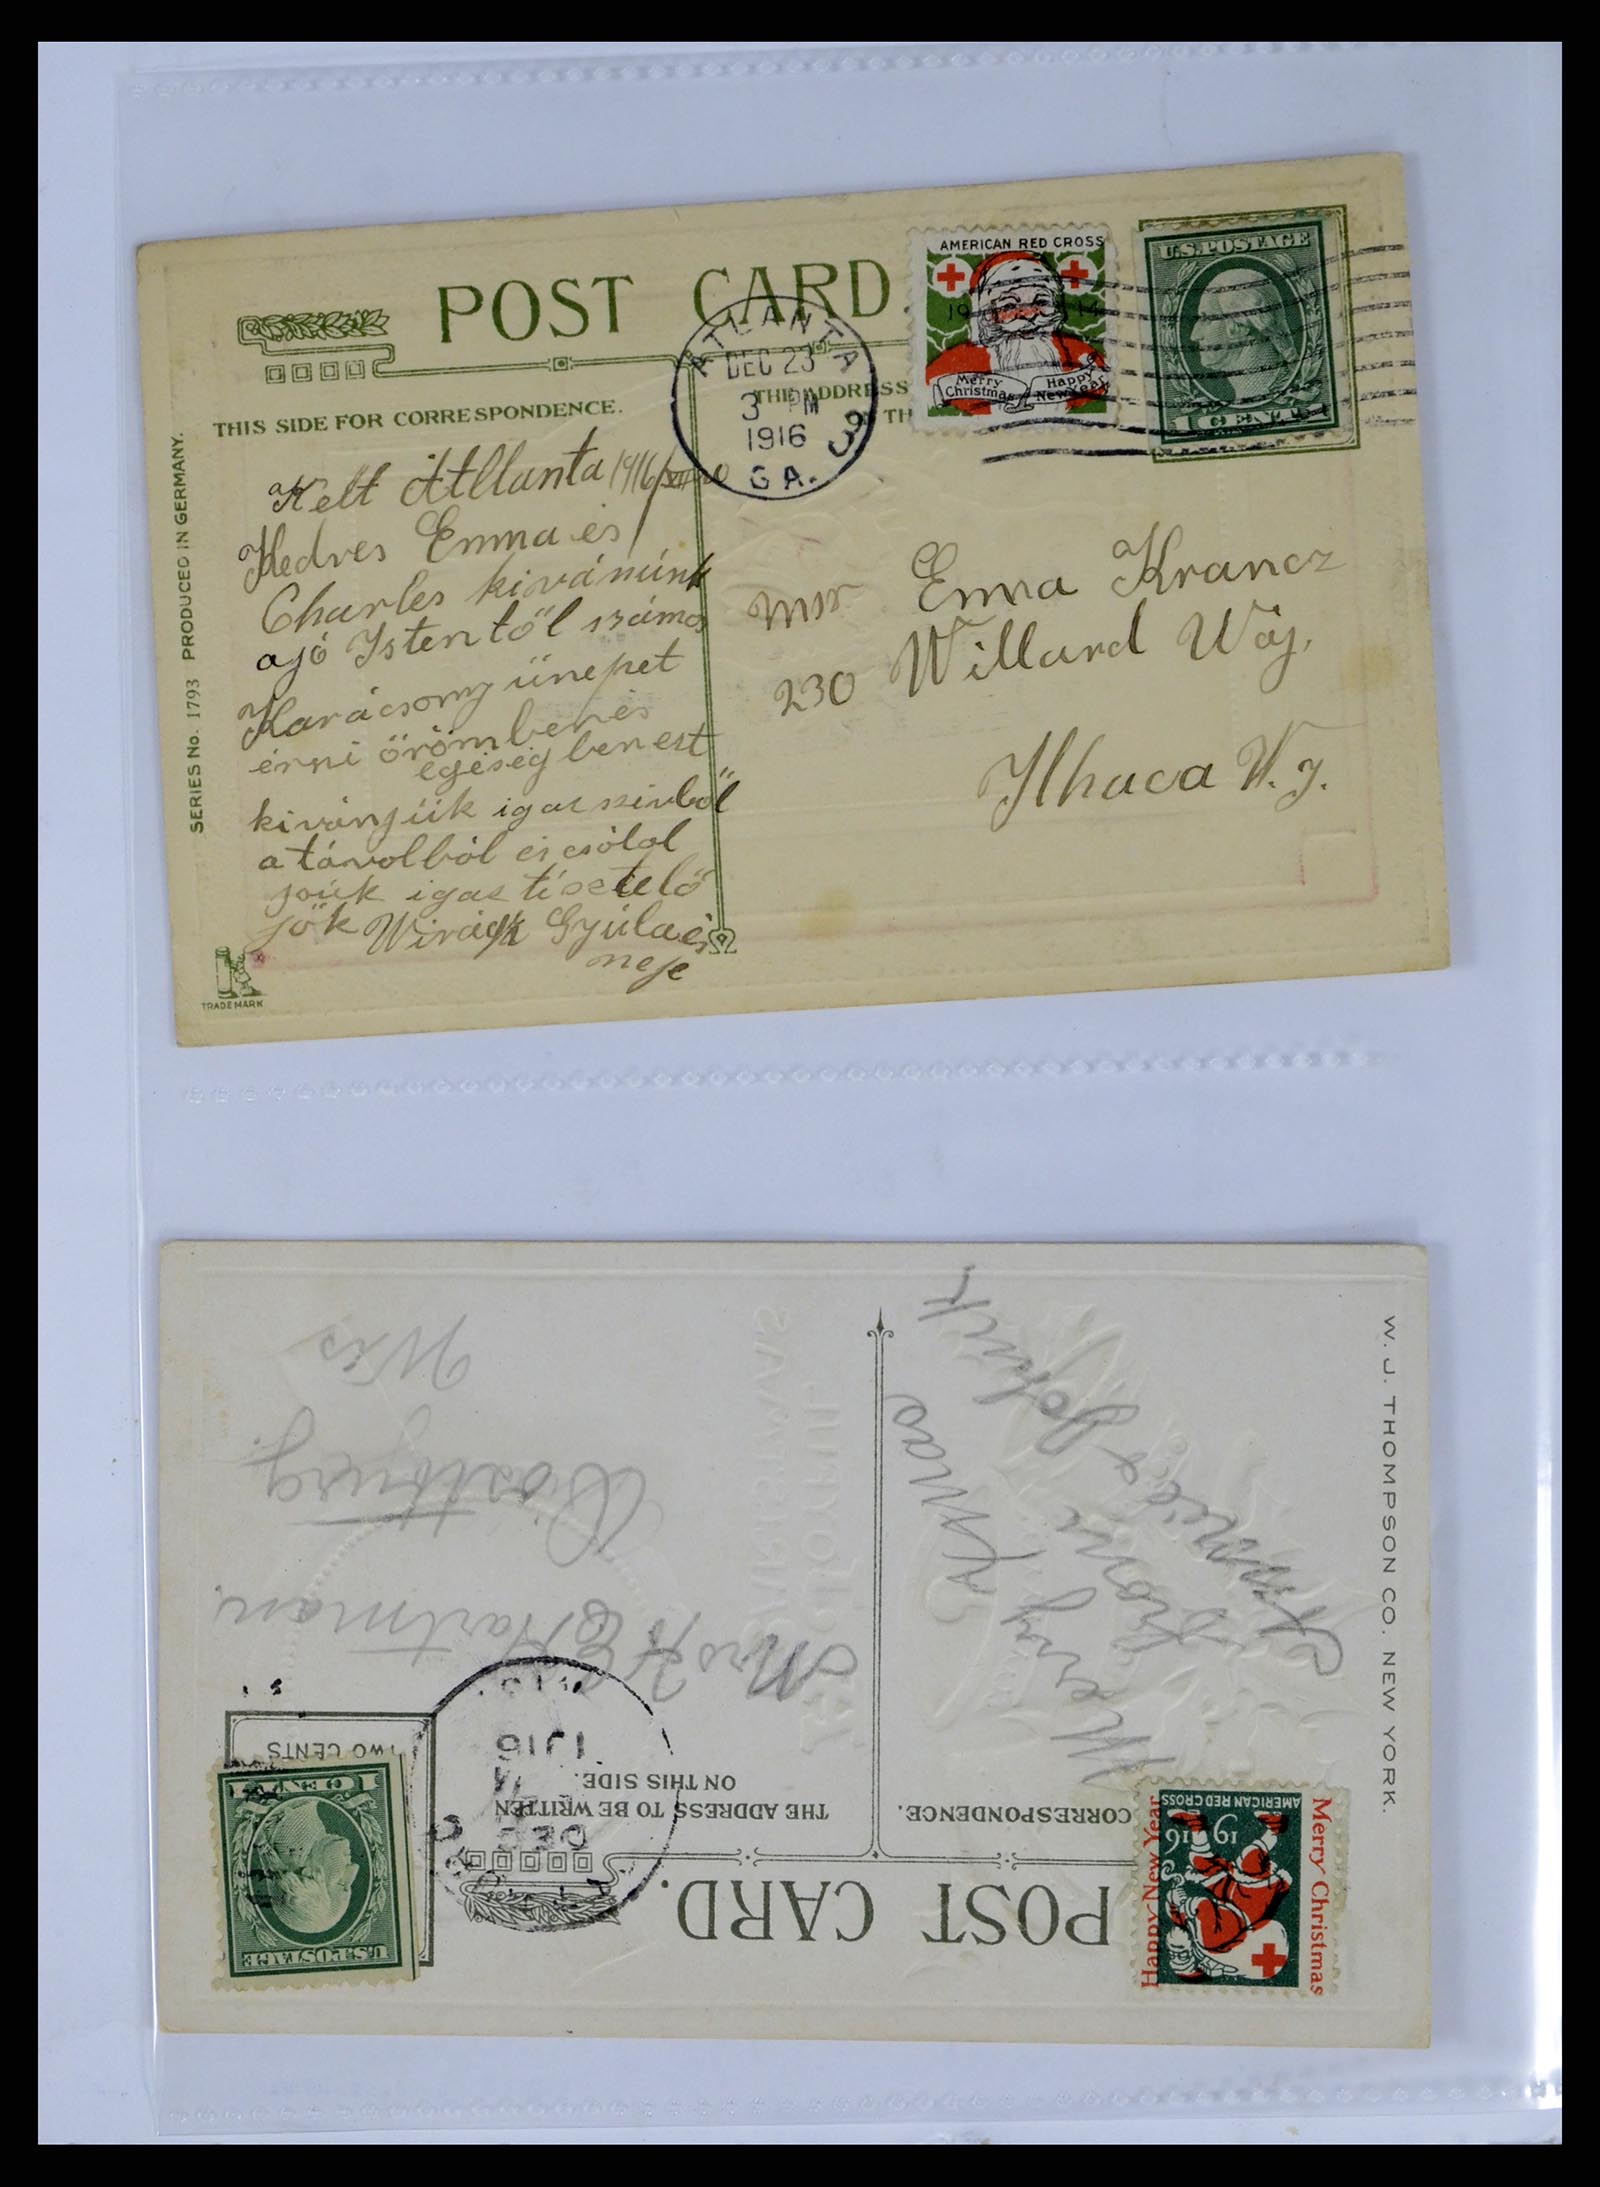 POST CARD.
AMERICAN RED CROSS
19 14
Merry Christmas
Happy New Year
U.S. POSTAGE
1 CENT 1
ATLANTA
DEC 23
3 PM
1916
GA.
THIS SIDE FOR CORRESPONDENCE.
THE ADDRESS
TH
SERIES No. 1793 PRODUCED IN GERMANY.
Kelt Atllanta 1916/XII/20
Kedves Emma és
Charles kivánúnk
ajó Istentől számos
Karácsony ünepet
érni örömben és
egéség ben ezt
kivánjúk igaz szivből
a távolból és csólol
juúk igaz tisztelő
jök Wirágh Gyúla és
neje
TRADE MARK
Emma Krancz
230 Willard Way,
Ithaca N.Y.
POST CARD.
U.S. POSTAGE
1 CENT 1
TWO CENTS
DEC
1916
THE ADDRESS TO BE WRITTEN
ON THIS SIDE.
CORRESPONDENCE.
Merry Christmas
Happy New Year
AMERICAN RED CROSS
1916
Merry Xmas
from
Mrs H E Hartman.
Oostburg.
Wis
A JOYFUL
CHRISTMAS
W. J. THOMPSON CO. NEW YORK.